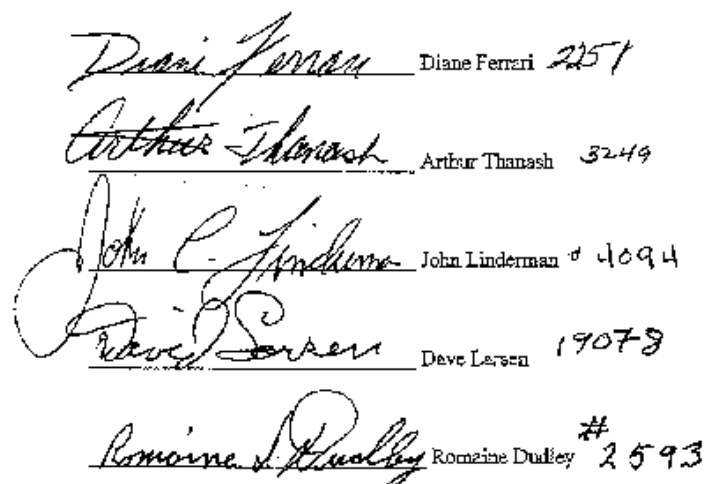 Diane Ferrari Diane Ferrari 2251
Arthur Thanash Arthur Thanash 3249
John C. Linderman John Linderman # 4094
David Larsen Dave Larsen 19078
Romaine S. Dudley Romaine Dudley # 2593